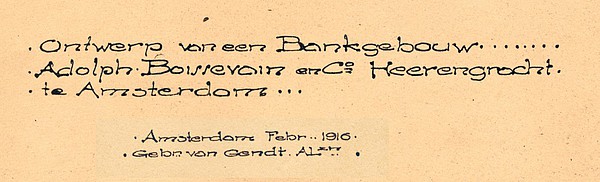 . Ontwerp van een Bankgebouw........
. Adolph. Boissevain en Co Heerengracht.
. te Amsterdam ...
. Amsterdam Febr.. 1916.
. Gebr. van Gendt. ALzn. .